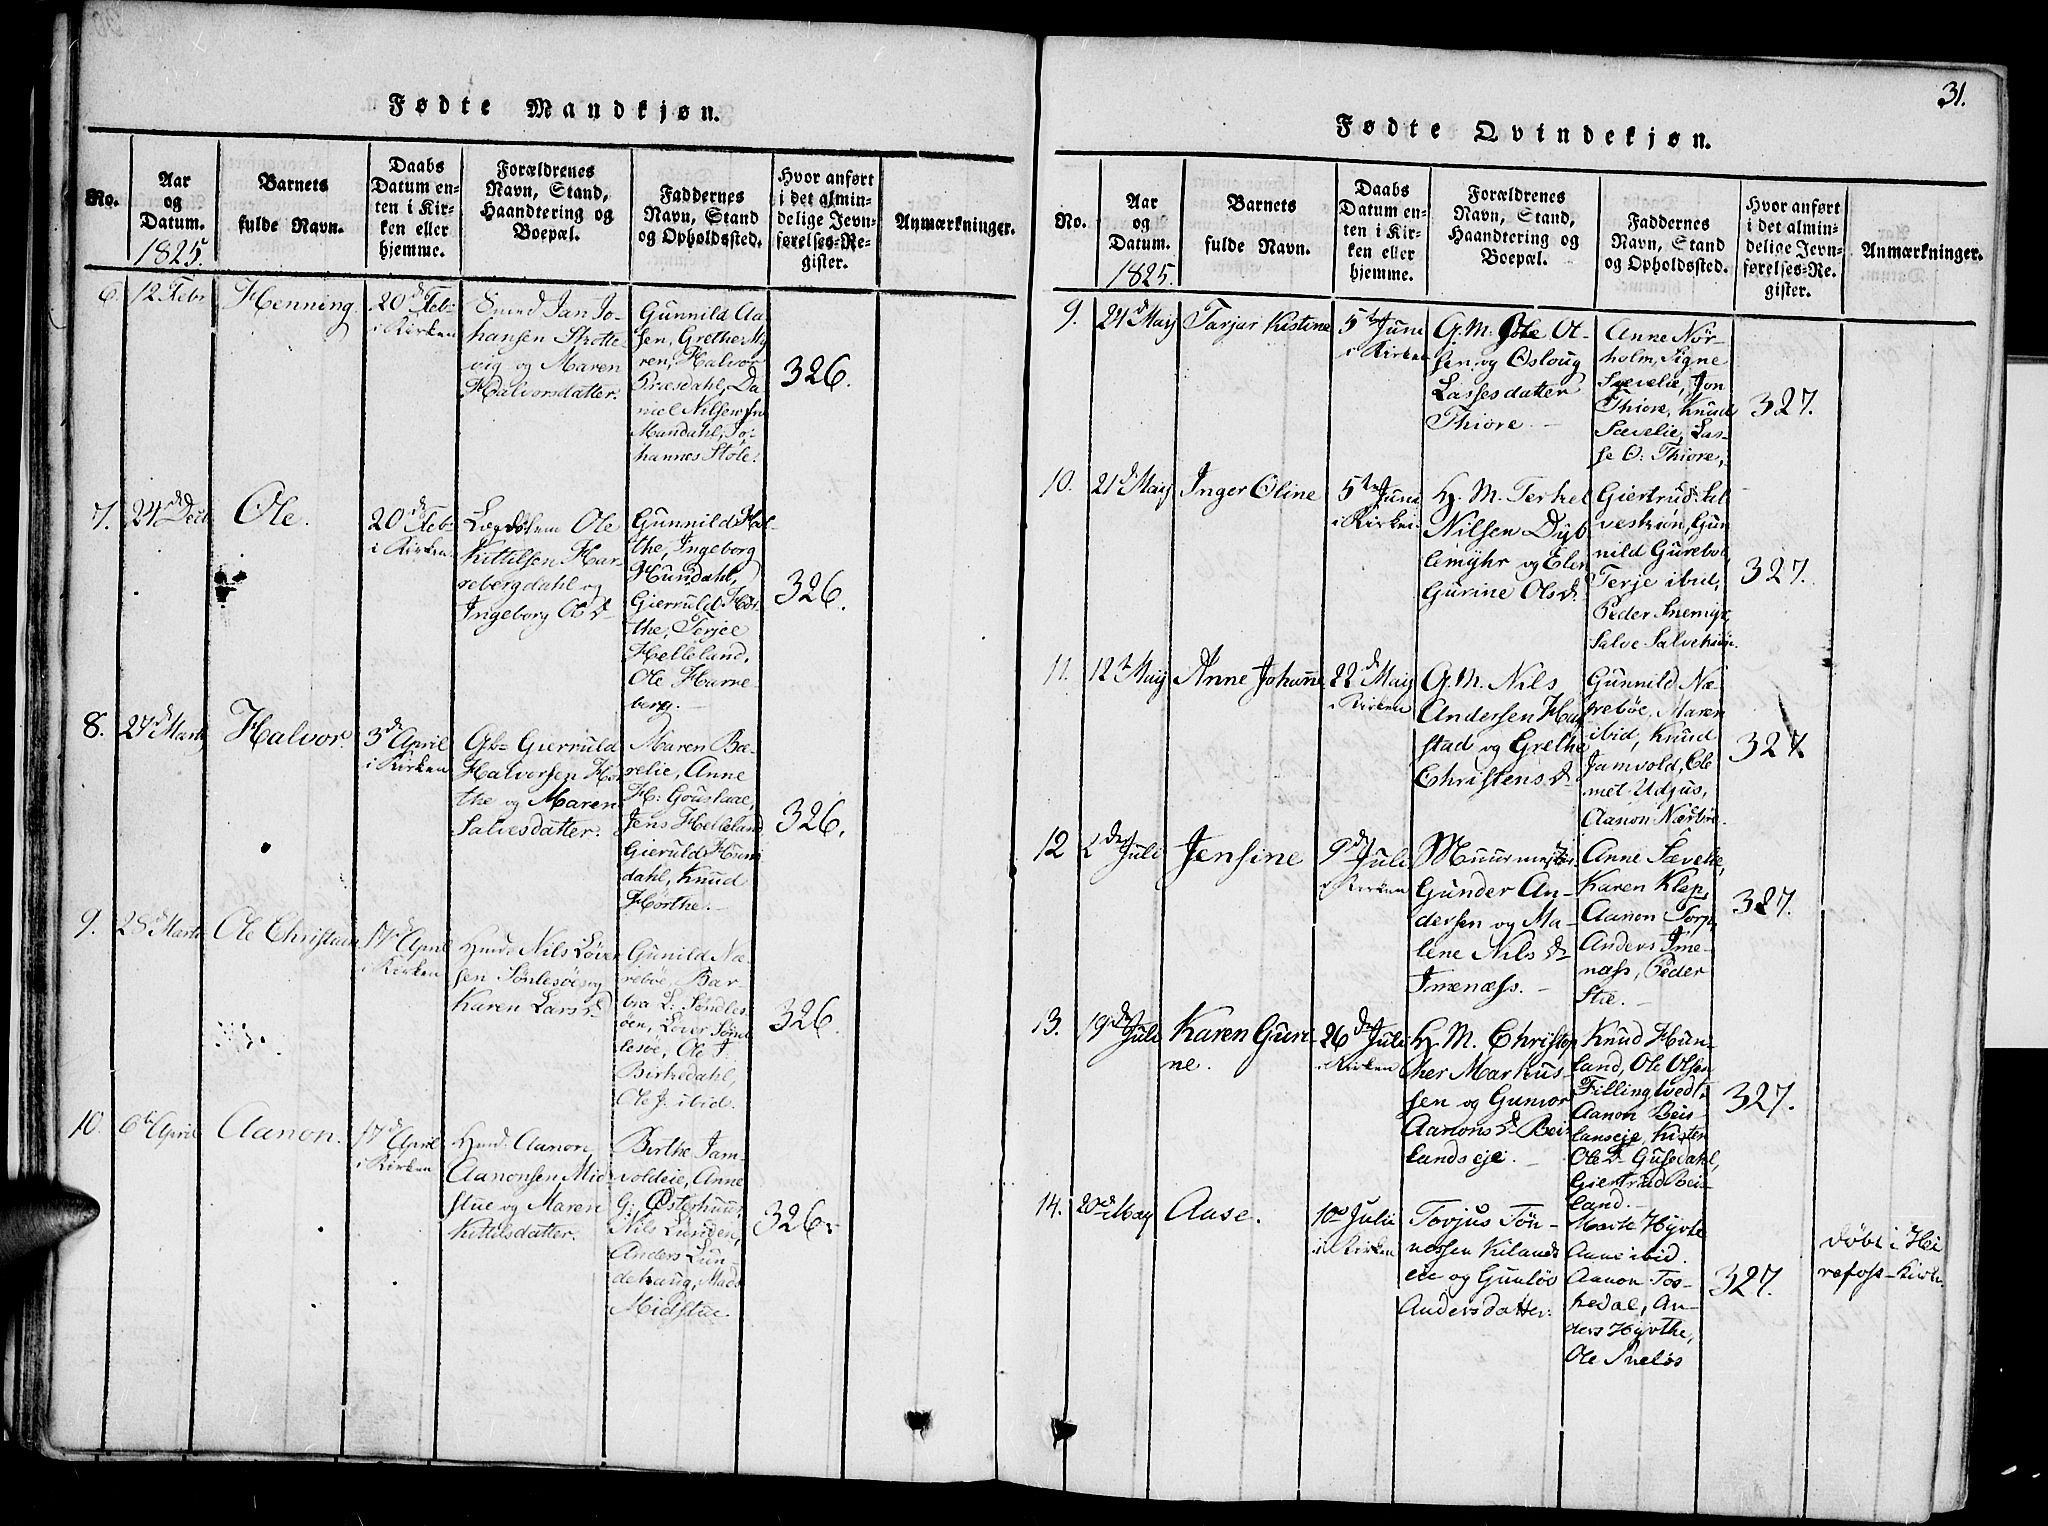 31.
Fødte Mandkjøn.
No.
Aar
og
Datum.
1825.
Barnets
fulde Navn.
Daabs
Datum en-
ten i Kir-
ken eller
hjemme.
Forældrenes
Navn, Stand,
Haandtering og
Boepæl.
Faddernes
Navn, Stand
og Opholdssted.
Hvor anført
i det almin-
delige Jevn-
førelses-Re-
gister.
Anmærkninger.
6.
12 Febr
Henning
20d Feb
i Kirken
Smed Jan Jo-
hansen Strotte
vig og Maren
Halvorsdatter.
Gunnild Aa-
sen, Grethe My
ren, Halvor
Præsdahl, Da
niel Nilsen
Mandahl, Jo-
hannes Støle.
326.
7.
24d Decb
Ole.
20d Feb
i Kirken
Ole
Kittilsen Har-
rebergdahl og
Ingeborg Ols D
Gunnild
the, Ingeborg
Hundahl,
Gierruld Hor
the, Terjee
Helleland,
Ole Harre-
berg.
326.
8.
27d Marts
Halvor.
3d April
i Kirken
Gb Gierruld
Halvorsen Hor
the og Maren
Salvesdatter.
Maren Bæ-
relie, Anne
H: Gouslaae,
Jens Helleland
Gieruld Hun
dahl, Knud
Horthe.
326.
9.
28d Marts
Ole Christian
17d April
i Kirken
Nils Løver
sen Sønlesøe og
Karen Lars D
Gunild Næ-
rebøe, Bar-
bra L: Søndles
øen, Løver Søn
lesøe, Ole J.
Birkedahl,
Ole J. ibid.
326.
10.
6te April
Aanon.
17d April
i Kirken
Aanon
Aanonsen Mid
stue og Maren
Kittilsdatter.
Birthe Jam-
voldeie, Anne
G: Østerhuus,
Nils Lunden,
Anders Lun-
dehaug, Mads
Midstue.
326.
Fødte Qvindekjøn.
No.
Aar
og
Datum.
1825.
Barnets
fulde Navn.
Daabs
Datum en-
ten i Kir-
ken eller
hjemme.
Forældrenes
Navn, Stand,
Haandtering og
Boepæl.
Faddernes
Navn, Stand
og Opholdssted.
Hvor anført
i det almin-
delige Jevn-
førelses-Re-
gister.
Anmærkninger.
9.
21d Maij
Tarjar Kistine
5te Juni
i Kirken
G. M. Ole Ol-
sen og Osloug
Lassesdatter
Thiore.
Anne Nør-
holm, Signe
Sævelie, Jon
Thiore, Knud
Sævelie, Las-
se O: Thiore,
327.
10.
21d Maij
Inger Oline
5te Juni
i Kirken
H. M. Terkel
Nilsen Dyb
lemyhr og Elen
Gurine Ols D.
Giertrud Sal
veskiøn, Gun
nild Gurebol,
Terje ibid,
Peder Snemyr,
Salve Salvekiøn.
327.
11.
12te Maij
Anne Johanne
22d Maij
i Kirken
G. M. Nils
Andersen Hau
stad og Grethe
Christens D
Gunnild Næ-
rebøe, Maren
ibid, Knud
Jamvold, Ole
met Udjus,
Aanon Nærbøe.
327.
12
2den Juli
Jensine
9d Juli
i Kirken
Muurmester
Gunder An-
dersen og Ma-
lene Nils D
Imenæss.
Anne Sævelie,
Karen Klep,
Aanon Torp,
Anders Ime-
næss, Peder
Stie.
327.
13.
19de Juli
Karen Guri-
ne.
26de Juli
i Kirken
H. M. Christop
her Markus-
sen og Gunvor
Aanons D Bei
landseje.
Knud Hun-
land, Ole Olsen
Fillingtvedt,
Aanon Bei-
lanseje, Kisten
Ole D Gusedahl,
Giertrud Bei-
land.
327.
14.
20de May
Aase.
10de Julii
i Kirken
Torjus Tøn-
nessen Kilands
eie og Gunløs
Andersdatter.
Marte Hyrte
Anne ibid.
Aanon Tos-
kedal, An-
ders Hyrthe,
Ole Sneløs
327.
døbt i Hei
refoss-Kirke.